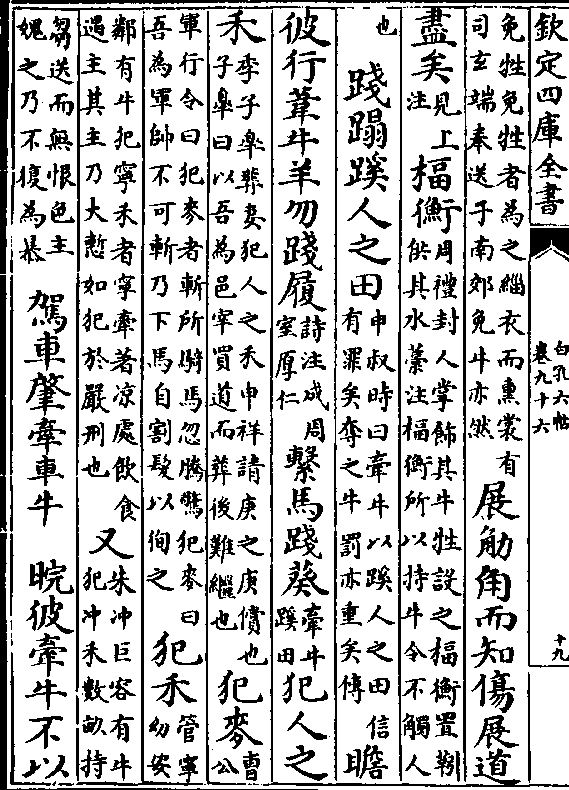 欽定四庫全書
白孔六帖
卷九十六
十九
免牲免牲者為之緇衣而熏裳有
司玄端奉送子南郊免牛亦然
展觓角而知傷展道
盡矣
見上
注
楅衡
周禮封人掌飾其牛牲設之楅衡置䋲
供其水藁注楅衡所以持牛令不觸人
也
踐蹋蹊人之田
申叔時曰牽牛以蹊人之田信
有罪矣奪之牛罰亦重矣傳
瞻
彼行葦牛羊勿踐履
詩注成周
室厚仁
繫馬踐葵
牽牛
蹊田
犯人之
禾
李子臯葬妻犯人之禾申祥請庚之庚償也
子臯曰以吾為邑宰買道而葬後難繼也
犯麥
曹
公
軍行令曰犯麥者斬所騎馬忽騰驚犯麥曰
吾為軍帥不可斬乃下馬自割髮以徇之
犯禾
管寧
幼安
鄰有牛犯寧禾者寧牽著凉處飲食
過主其主乃大慙如犯於嚴刑也
又
朱冲巨容有牛
犯冲禾數畝持
芻送而無恨色主
媿之乃不復為暴
駕車肇牽車牛
睆彼牽牛不以